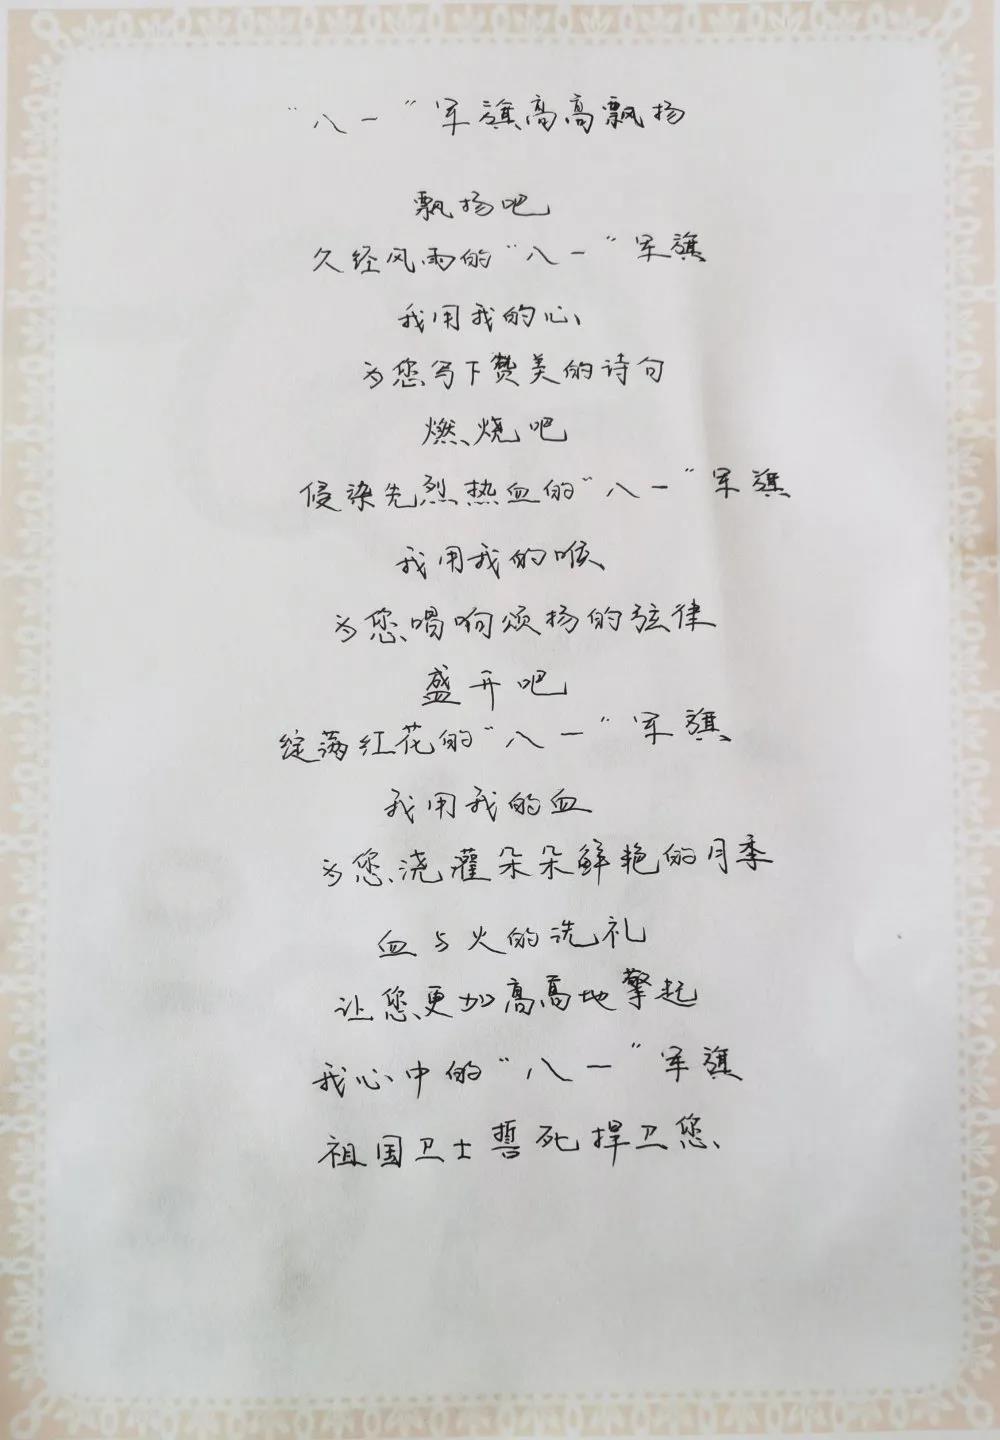 “八一”军旗高高飘扬
飘扬吧
久经风雨的“八一”军旗
我用我的心
为您写下赞美的诗句
燃烧吧
侵染先烈热血的“八一”军旗
我用我的喉
为您唱响颂扬的弦律
盛开吧
绽满红花的“八一”军旗
我用我的血
为您浇灌朵朵鲜艳的月季
血与火的洗礼
让您更加高高地擎起
我心中的“八一”军旗
祖国卫士誓死捍卫您